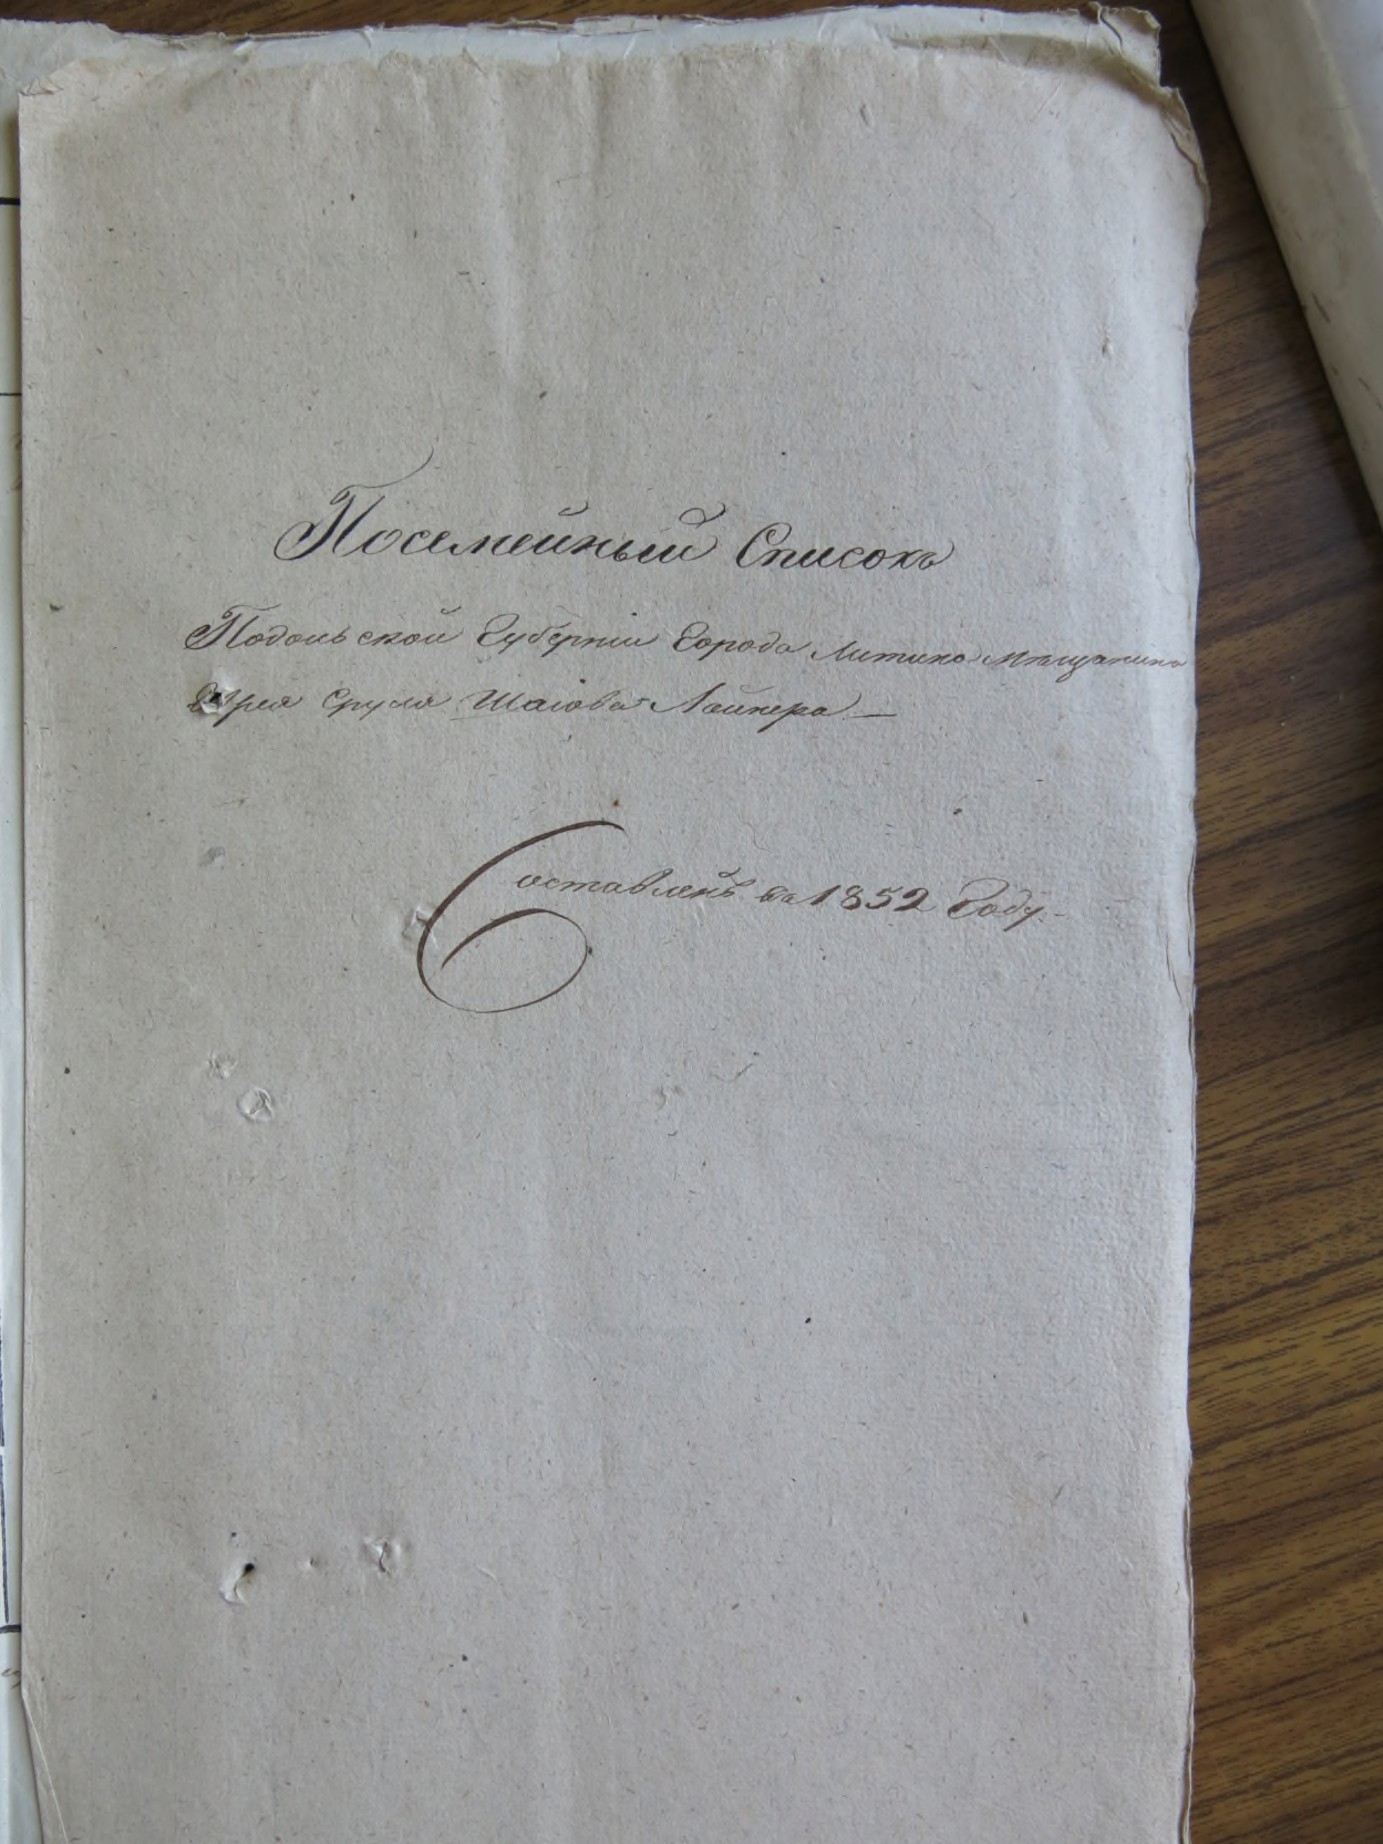 Посемейный Списокъ
Подольской Губерніи Города Литина Мѣщанина
Еврея Сруля Шаіова Лайнера —
Составленъ въ 1852 Году.